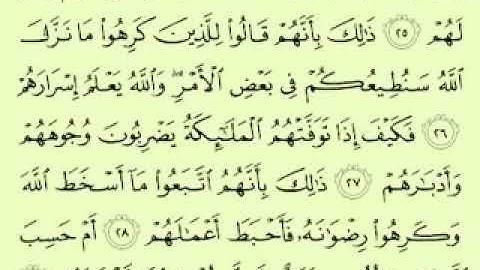 لَهُمْ ٢٥ ذَٰلِكَ بِأَنَّهُمْ قَالُوا۟ لِلَّذِينَ كَرِهُوا۟ مَا نَزَّلَ
ٱللَّهُ سَنُطِيعُكُمْ فِى بَعْضِ ٱلْأَمْرِ ۖ وَٱللَّهُ يَعْلَمُ إِسْرَارَهُمْ
٢٦ فَكَيْفَ إِذَا تَوَفَّتْهُمُ ٱلْمَلَـٰٓئِكَةُ يَضْرِبُونَ وُجُوهَهُمْ
وَأَدْبَـٰرَهُمْ ٢٧ ذَٰلِكَ بِأَنَّهُمُ ٱتَّبَعُوا۟ مَآ أَسْخَطَ ٱللَّهَ
وَكَرِهُوا۟ رِضْوَٰنَهُۥ فَأَحْبَطَ أَعْمَـٰلَهُمْ ٢٨ أَمْ حَسِبَ